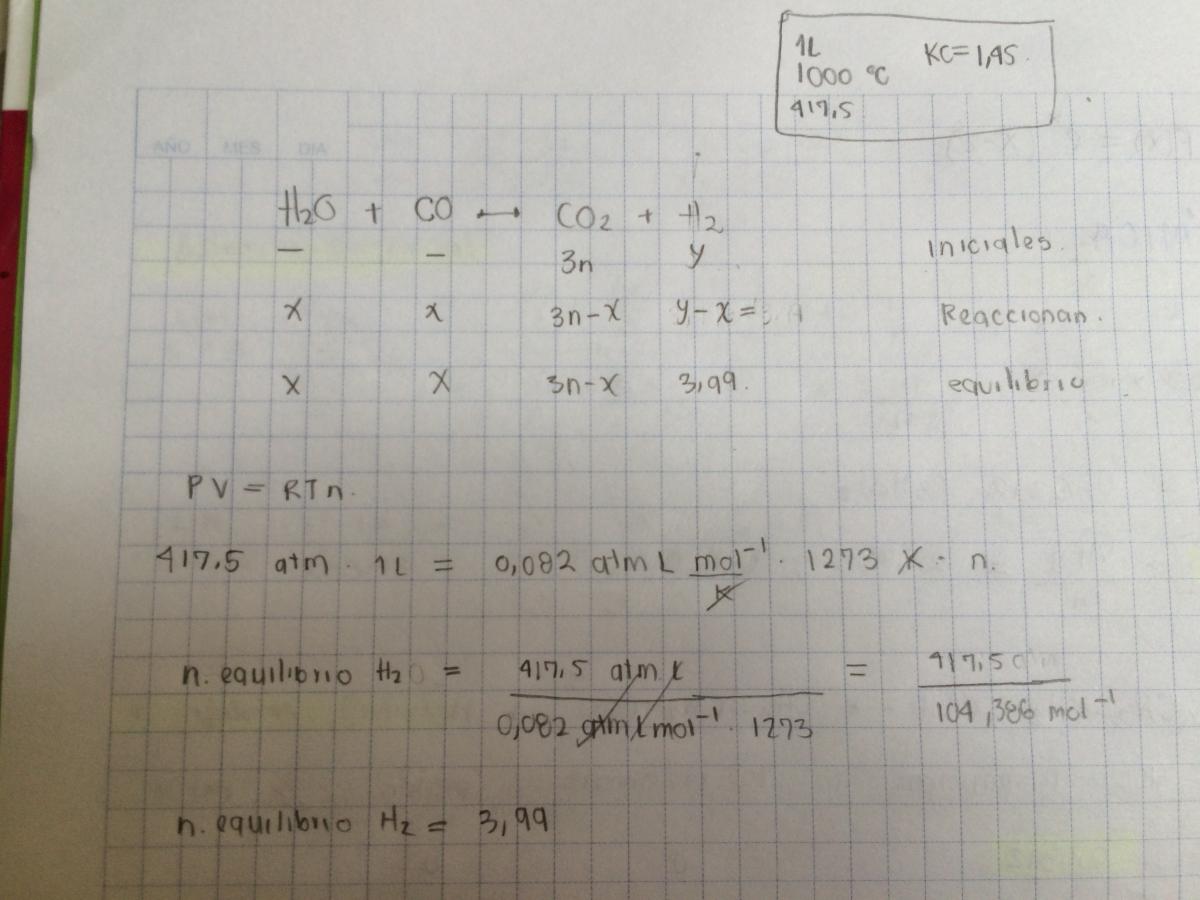 1L KC=1,45.
1000 °C
417,5
AÑO MES DIA
H₂O + CO ⟷ CO₂ + H₂
— — 3n y iniciales.
x x 3n-x y-x= Reaccionan.
x x 3n-x 3,99. equilibrio
PV = RTn.
417.5 atm · 1L = 0,082 atm L mol⁻¹/K · 1273 K · n.
n. equilibrio H₂ = 417,5 atm L / 0,082 atm L mol⁻¹ · 1273 = 417,5 / 104,386 mol⁻¹
n. equilibrio H₂ = 3,99